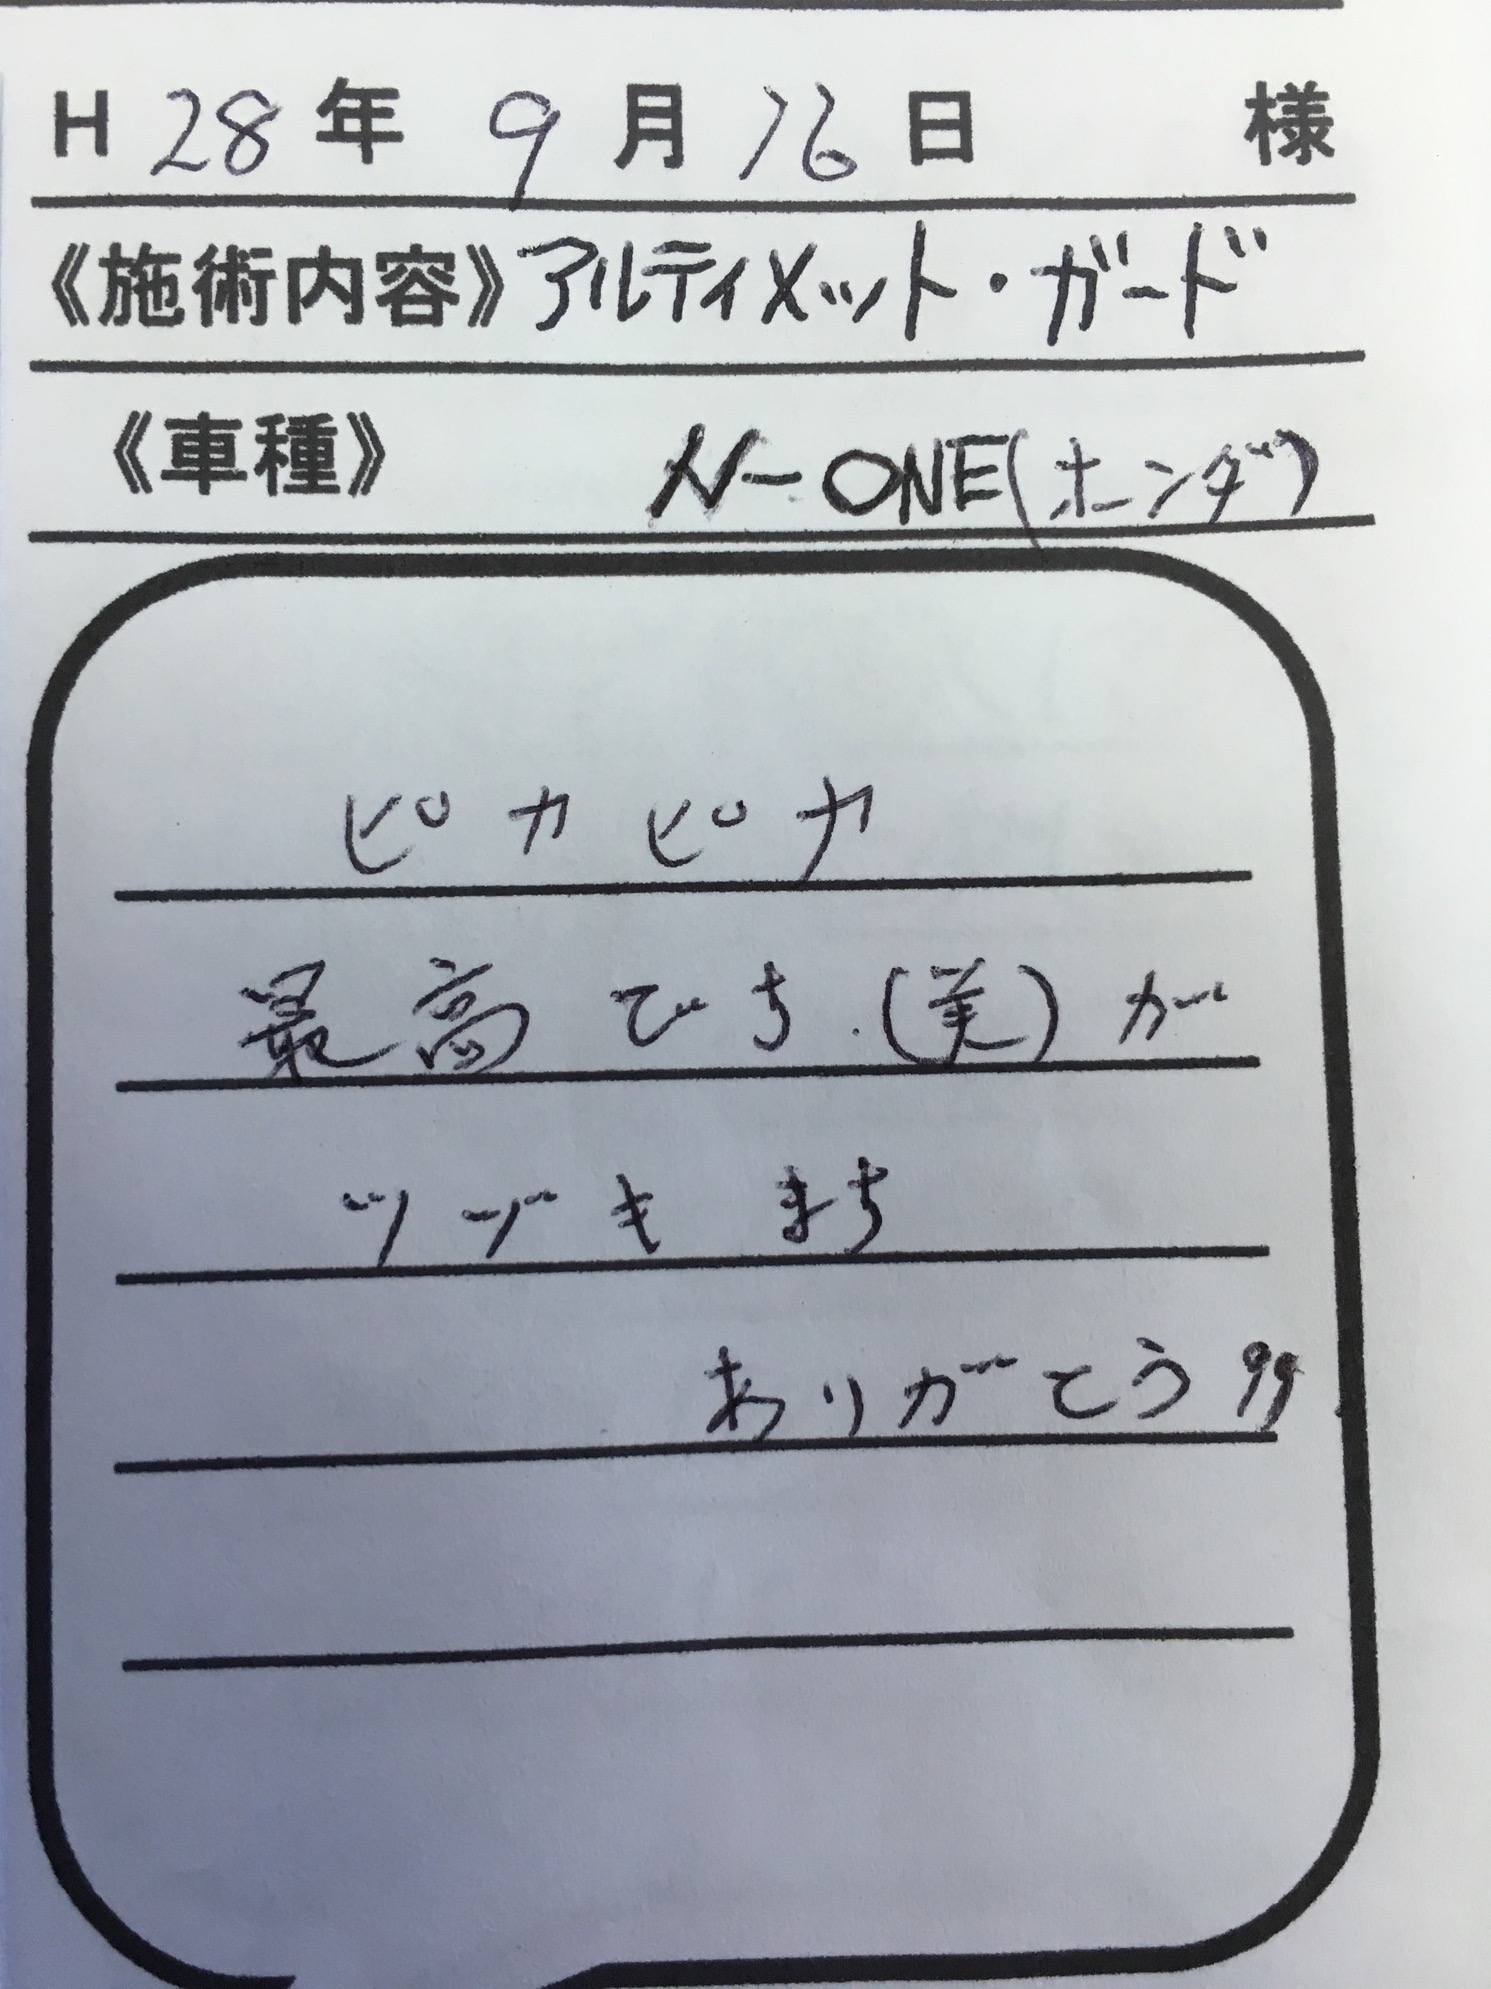 H 28 年 9 月 16 日 様
《施術内容》アルティメット・ガード
《車種》 N-ONE(ホンダ)
ピカピカ
最高です.(美)が
ツヅキます
ありがとう!!